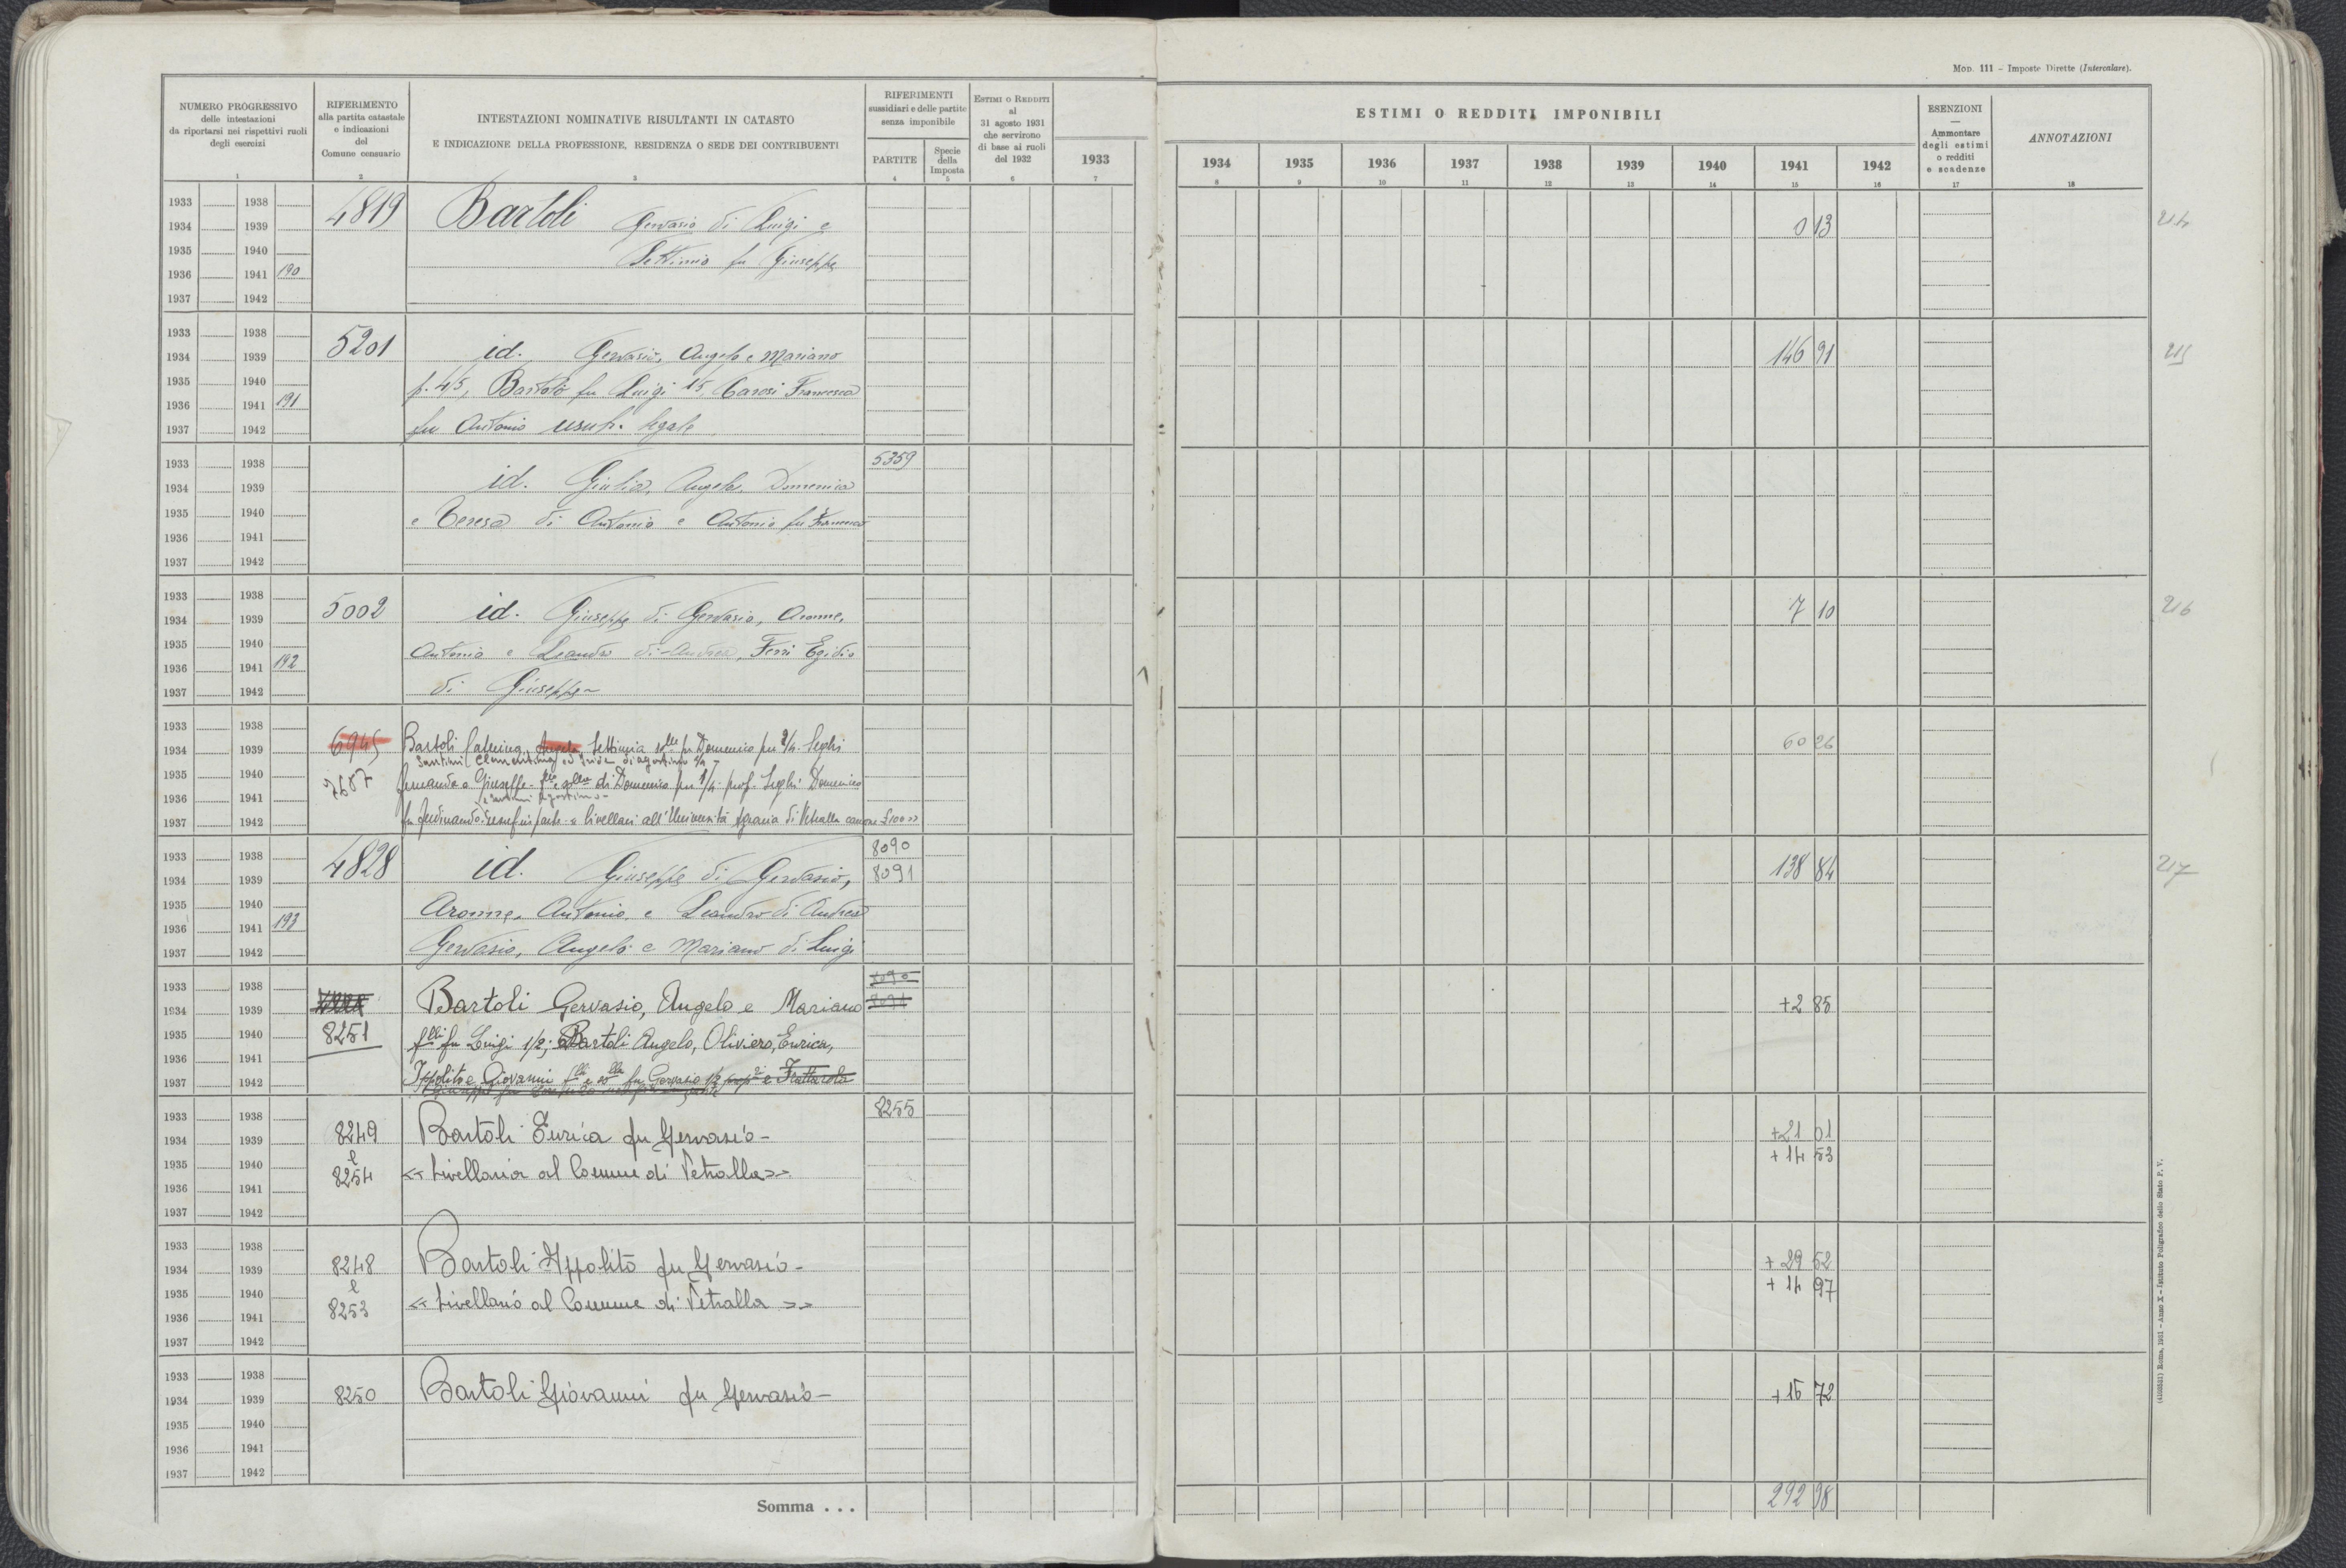 MOD. 111 - Imposte Dirette (Intercalare).
NUMERO PROGRESSIVO
delle intestazioni
da riportarsi nei rispettivi ruoli
degli esercizi
1
RIFERIMENTO
alla partita catastale
e indicazioni
del
Comune censuario
2
INTESTAZIONI NOMINATIVE RISULTANTI IN CATASTO
E INDICAZIONE DELLA PROFESSIONE, RESIDENZA O SEDE DEI CONTRIBUENTI
3
RIFERIMENTI
sussidiari e delle partite
senza imponibile
PARTITE
4
Specie
della
Imposta
5
ESTIMI O REDDITI
al
31 agosto 1931
che servirono
di base ai ruoli
del 1932
6
1933
7
ESTIMI O REDDITI IMPONIBILI
1934 1935 1936 1937 1938 1939 1940 1941 1942
8 9 10 11 12 13 14 15 16
ESENZIONI
—
Ammontare
degli estimi
o redditi
e scadenze
17
ANNOTAZIONI
18
1933 1938 4819 Bartoli Gervasio di Luigi e
1934 1939 0 13 214
1935 1940 Settimio fu Giuseppe
1936 1941 190
1937 1942
1933 1938
1934 1939 5201 id. Gervasio, Angelo e Mariano 146 91 215
1935 1940 f. 4/5, Bartoli fu Luigi 1/5, Carosi Francesca
1936 1941 191
1937 1942 fu Antonio usuf. legale
1933 1938 5359
1934 1939 id. Giulia, Angela, Domenica
1935 1940 e Teresa di Antonio e Antonio fu Francesco
1936 1941
1937 1942
1933 1938
1934 1939 5002 id. Giuseppe di Gervasio, Aronne, 7 10 216
1935 1940 Antonio e Leandro di Andrea, Ferri Egidio
1936 1941 192
1937 1942 di Giuseppe
1933 1938
1934 1939 6945 Bartoli Caterina, Angela, Settimia slle fu Domenico per 2/4. Leghi 60 26
Santini Clementina ed di Agostino
1935 1940 7687 Fernanda e Giuseppe di Domenico per 1/4. prof. Leghi Domenico
1936 1941
1937 1942 fu Ferdinando usuf. in parte. livellari all'Università Agraria di Vetralla canone £100
1933 1938 8090
1934 1939 4828 id. Giuseppe di Gervasio, 8091 138 84 217
1935 1940 Aronne, Antonio e Leandro di Andrea
1936 1941 193
1937 1942 Gervasio, Angelo e Mariano di Luigi
1933 1938 8090
1934 1939 Bartoli Gervasio, Angelo e Mariano 8091 +2 85
1935 1940 8251 flli fu Luigi 1/2; Bartoli Angelo, Oliviero, Enrica,
1936 1941
1937 1942 Ippolito e Giovanni flli e slla fu Gervasio 1/2 propri e Frattarola
1933 1938 8255
1934 1939 8249 Bartoli Enrica fu Gervasio - +21 01
1935 1940 e 8254 « Livellaria al Comune di Vetralla» +14 53
1936 1941
1937 1942
1933 1938
1934 1939 8248 Bartoli Ippolito fu Gervasio - + 29 52
1935 1940 e 8253 « Livellario al Comune di Vetralla » + 14 97
1936 1941
1937 1942
1933 1938
1934 1939 8250 Bartoli Giovanni fu Gervasio - + 15 72
1935 1940
1936 1941
1937 1942
Somma . . . 292 98
Roma, 1931 - Anno X - Istituto Poligrafico dello Stato P. V.